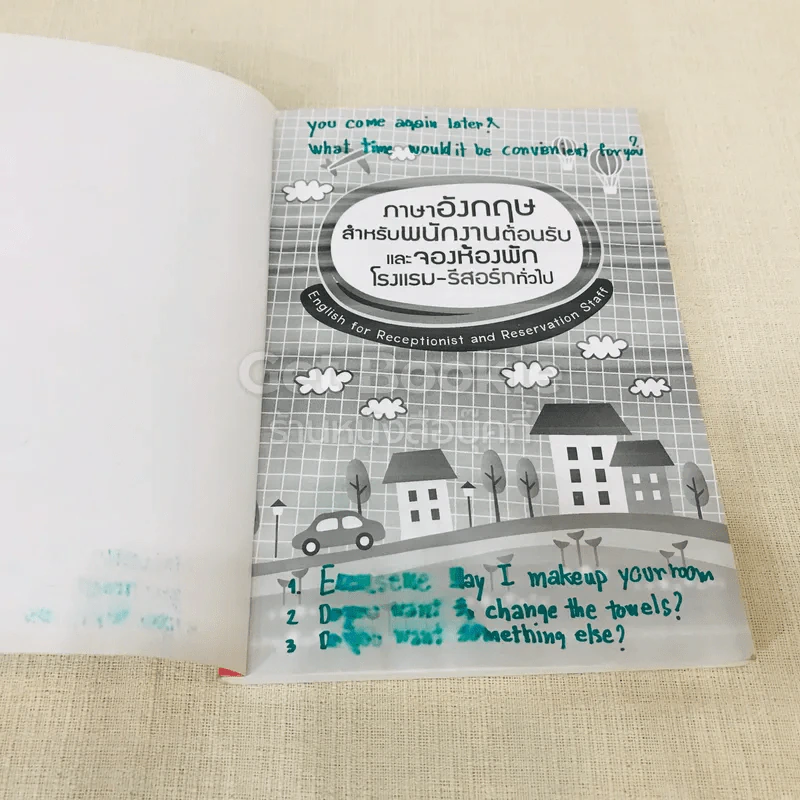 you come again later?
what time would it be convienient for you?
ภาษาอังกฤษ
สำหรับพนักงานต้อนรับ
และจองห้องพัก
โรงแรม-รีสอร์ททั่วไป
English for Receptionist and Reservation Staff
Get Books
ร้านหนังสือบุ๊คที่
1. May I makeup your room
2 Do you want to change the towels?
3 Do you want something else?